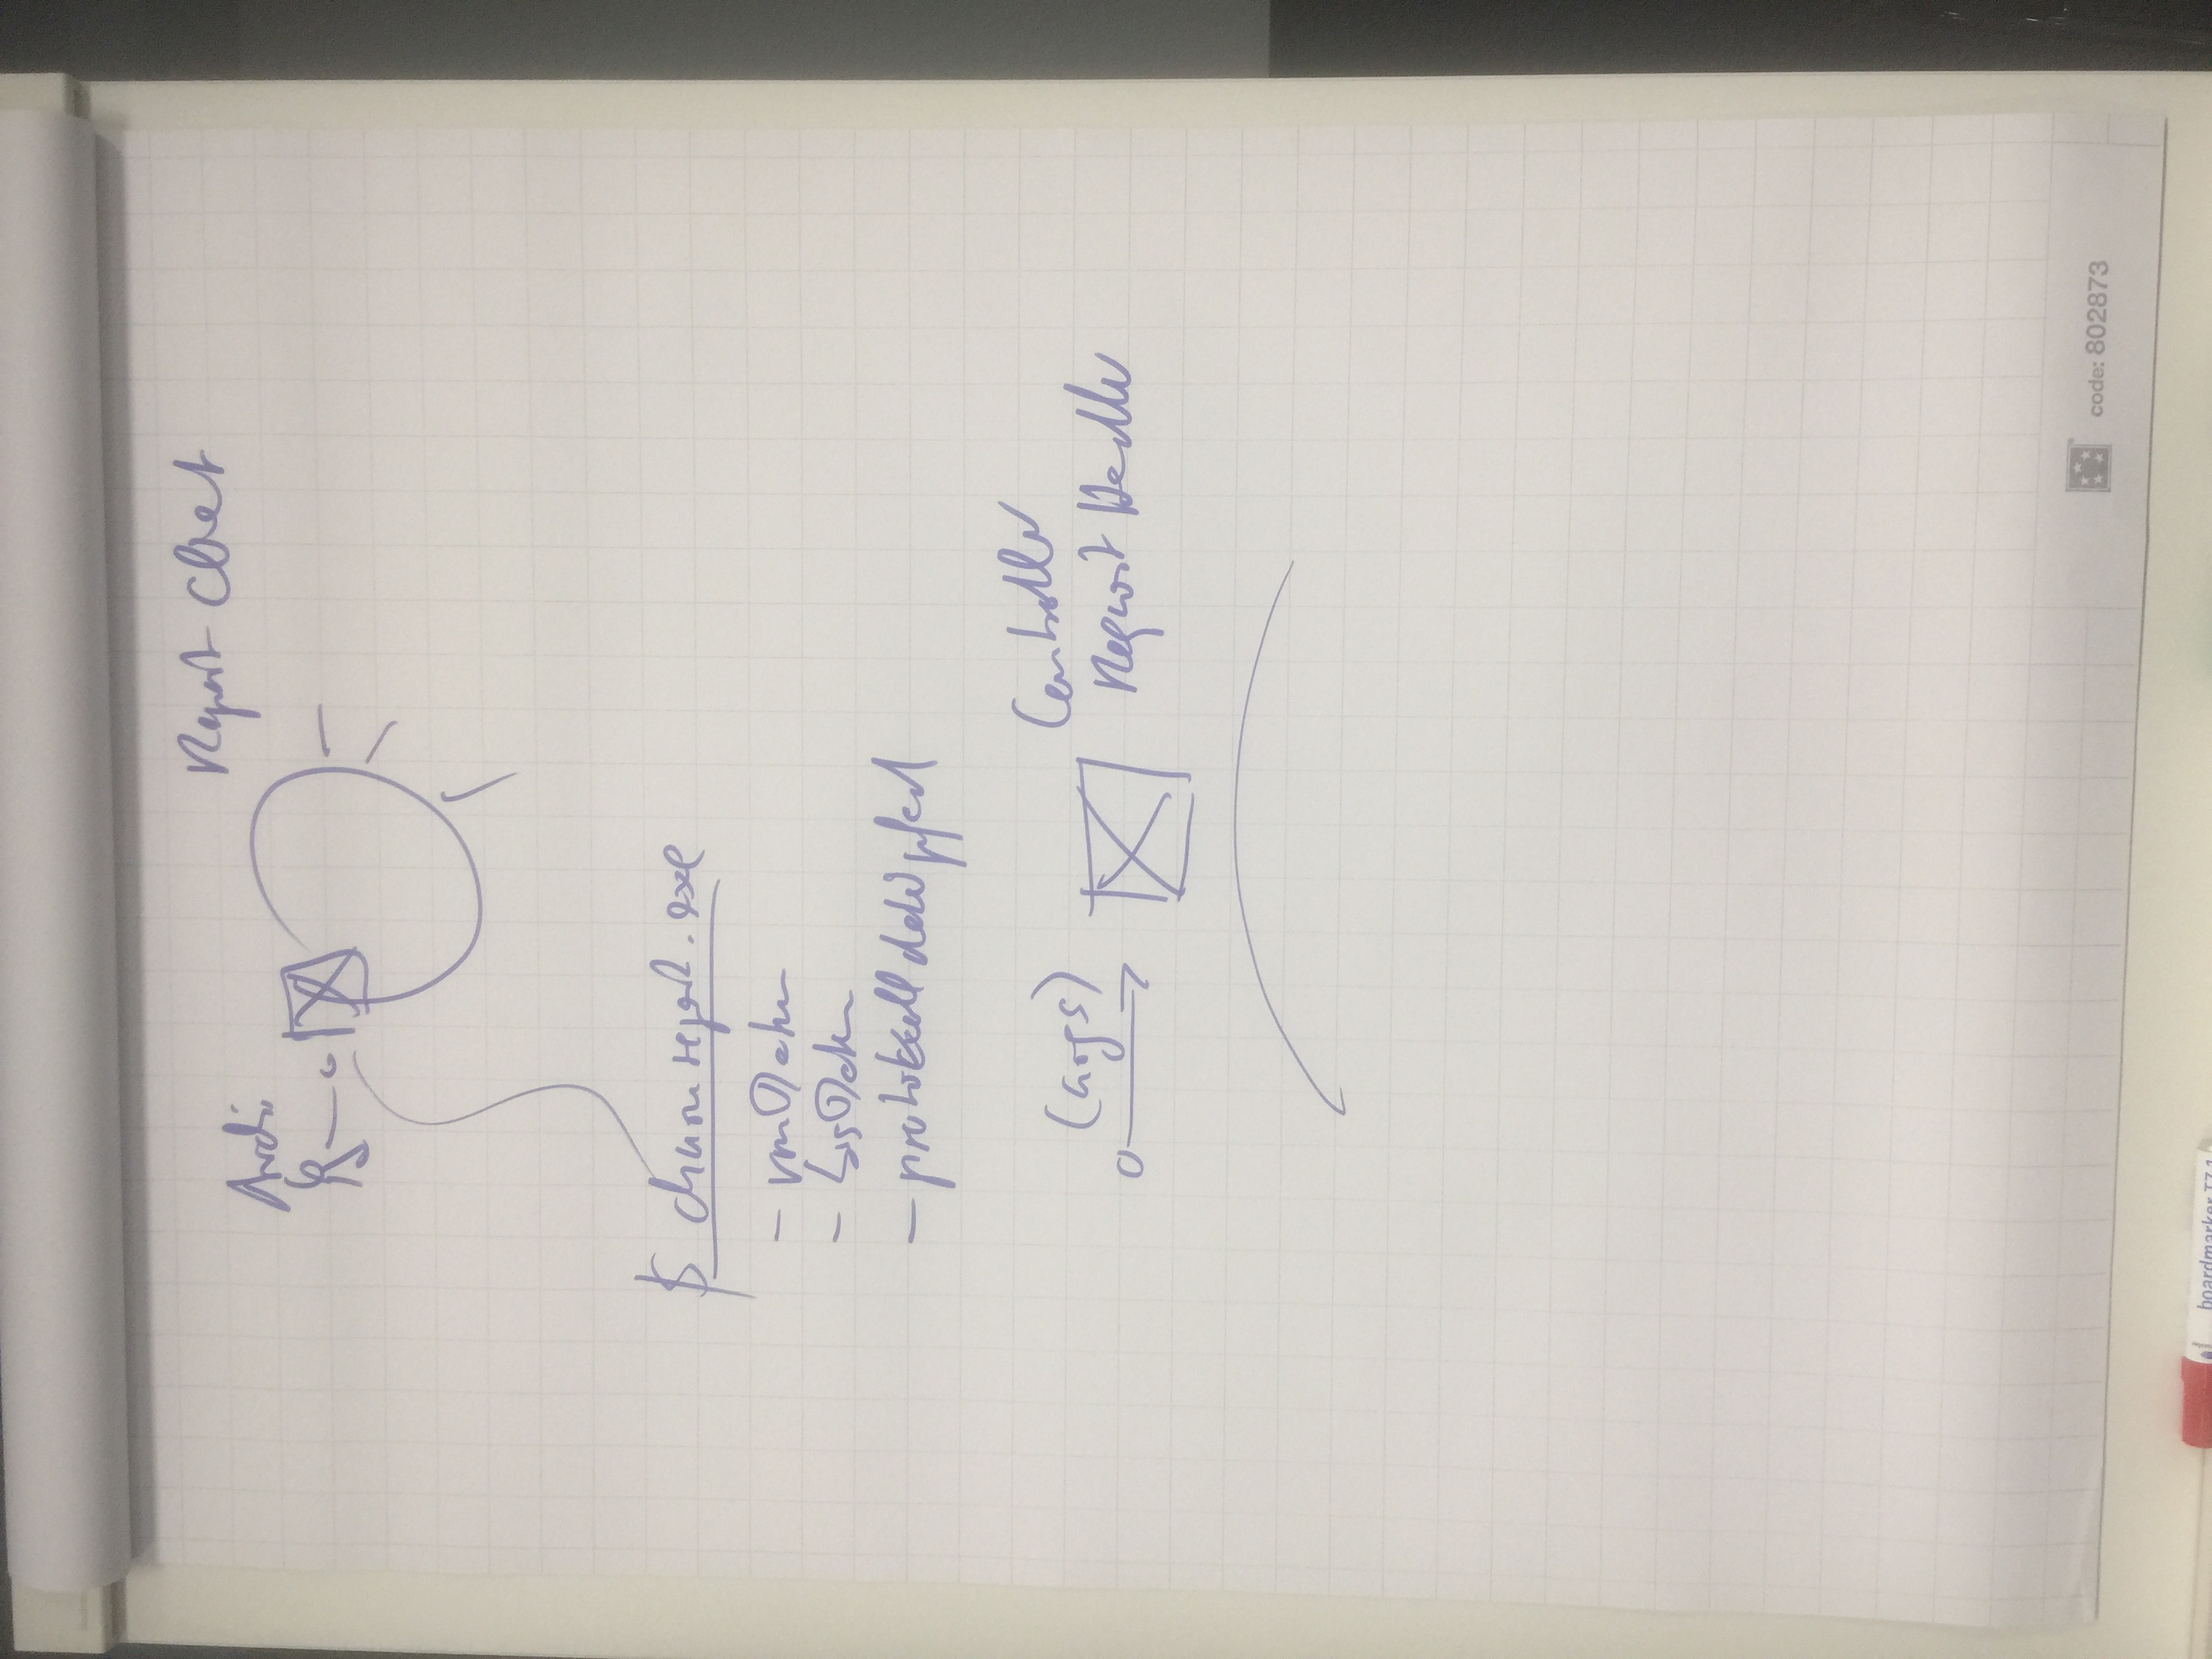 Report Client
$ churn report.exe
- von Datum
- bis Datum
- protokolldateipfad
(args)
Controller
Request Handler
code: 802873
boardmarker TZ 1